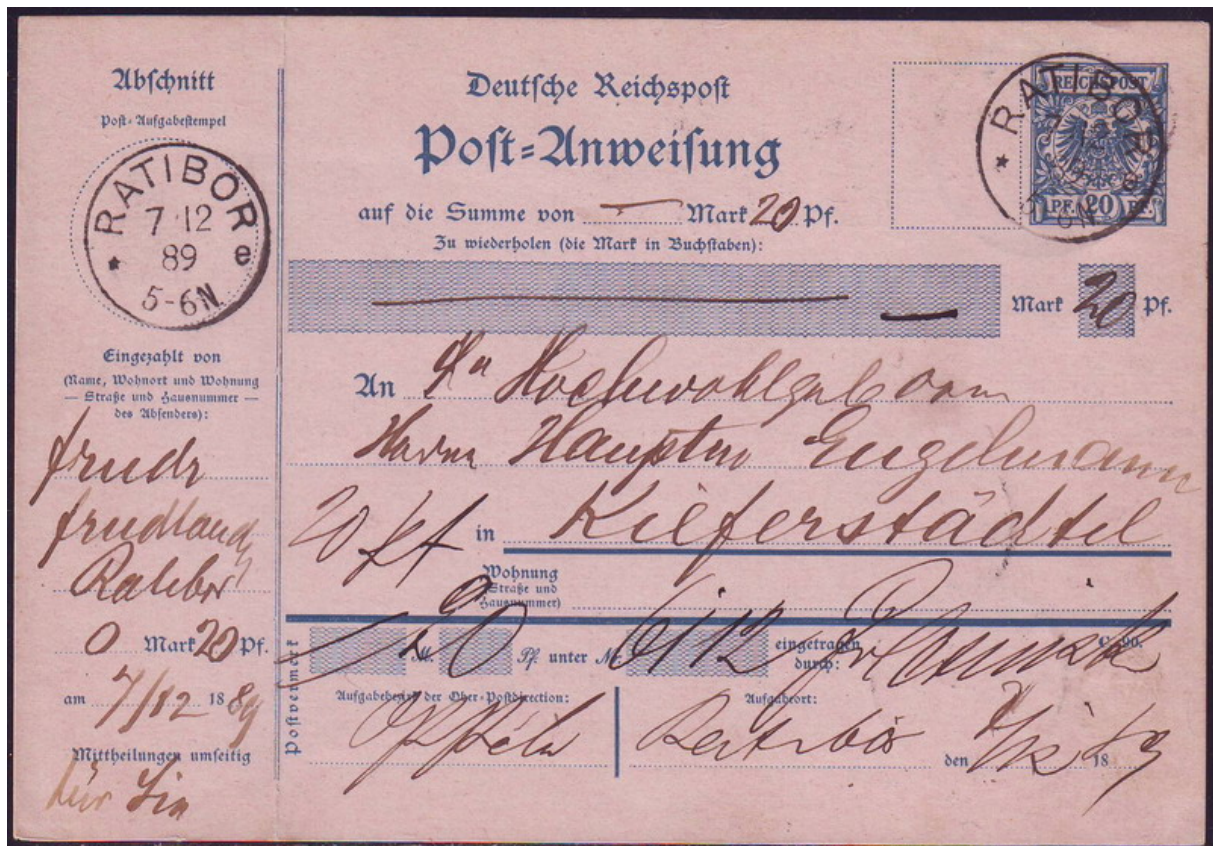 Abschnitt
Post-Aufgabestempel
RATIBOR
7 12
89
5-6N
* e
Eingezahlt von
(Name, Wohnort und Wohnung
— Straße und Hausnummer —
des Absenders):
Ratibor
0 Mark 20 Pf.
am 7/12 1889
Mittheilungen umseitig
Deutsche Reichspost
Post-Anweisung
auf die Summe von — Mark 20 Pf.
Zu wiederholen (die Mark in Buchstaben):
— Mark 20 Pf.
An Hochwohlgeboren
Herrn Hauptm Engelmann
in Kieferstädtel
Wohnung
(Straße und
Hausnummer)
Postvermerk
M. 20 Pf. unter Nr. 6112 eingetragen
durch:
C. 90.
Aufgabebezirk der Ober-Postdirection:
Oppeln
Aufgabeort:
Ratibor
den 7/12 1889
REICHSPOST
PF. 20 PF.
RATIBOR
12